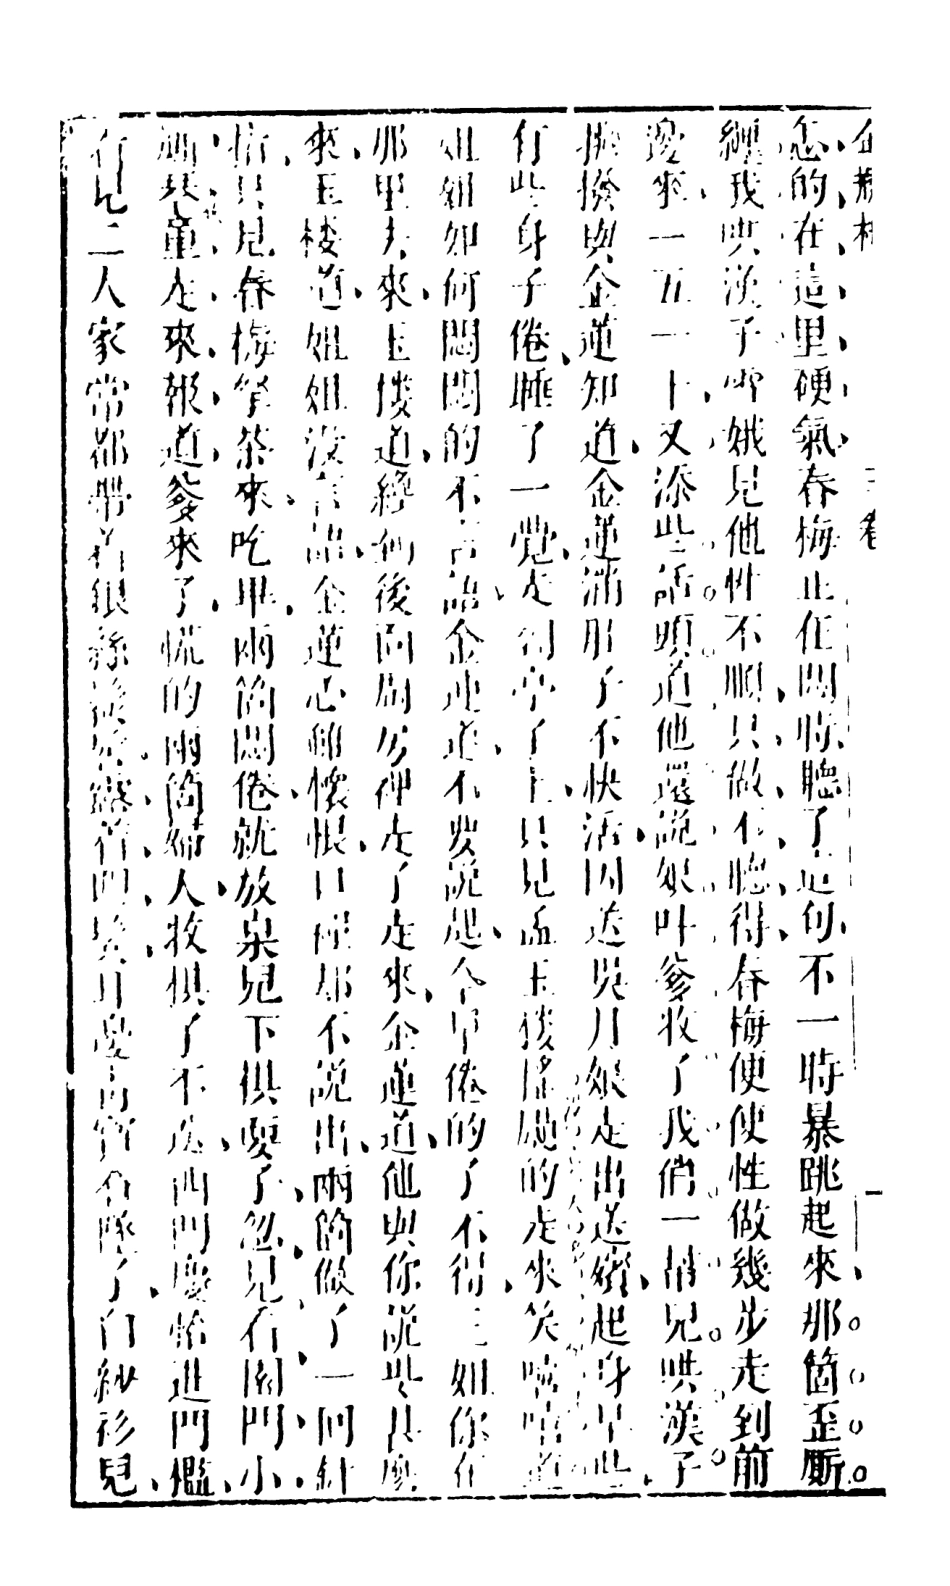 金瓶梅 二卷 一
怎的在這里硬氣春梅正在悶時聽了這句不一時暴跳起來那箇歪厮
纏我哄漢子雪娥見他性不順只做不聽得春梅便使性做幾步走到前
邊來一五一十又添些話頭道他還說娘叫爹收了我俏一幫兒哄漢子
挑撥與金蓮知道金蓮滿肚子不快活因送吳月娘走出送殯起身早些
有些身子倦睡了一覺走到亭子上只見孟玉樓搖颭的走來笑嘻嘻道
姐姐如何悶悶的不言語金蓮道不要說起今早倦的了不得三姐你在
那里去來玉樓道纔到後面廚房裡走了走來金蓮道他與你說些甚麼
來玉樓道姐姐沒言語金蓮心雖懷恨口裡却不說出兩箇做了一回針
指只見春梅拿茶來吃畢兩箇悶倦就放桌兒下棋耍子忽見看園門小
厮琴童走來報道爹來了慌的兩箇婦人收棋子不迭西門慶恰進門檻
看見二人家常都帶着銀絲䯼髻露着四鬢耳邊青寶石墜子白紗衫兒